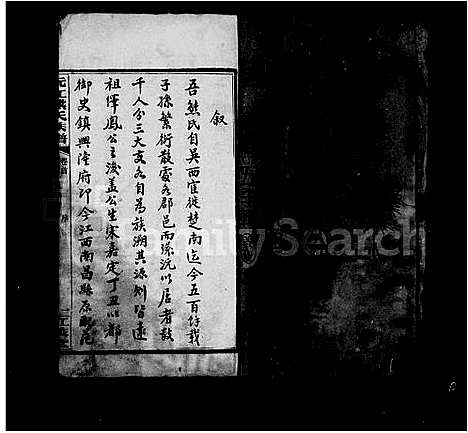 叙
吾熊氏自吳西宦徙楚南迄今五百餘載
子孫繁衍散處各郡邑而環沅以居者數
千人分三大支各自為族溯其源則皆遠
祖倬鳳公之後蓋公生宋嘉定丁丑以都
御史鎮興陸府卬今江西南昌縣原
沅江熊氏族譜
卷首
序
FamilySearch